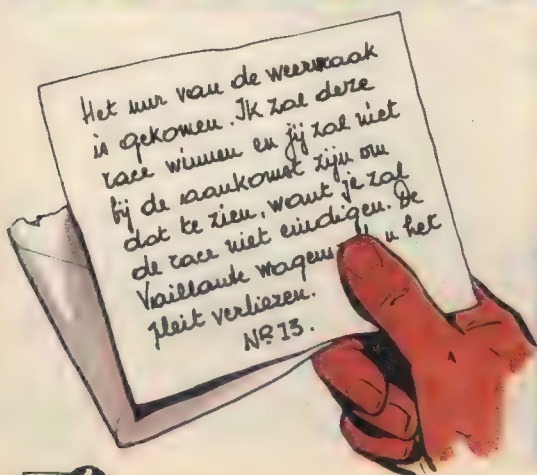 Het uur van de weerwraak
is gekomen. Ik zal deze
race winnen en jij zal niet
bij de aankomst zijn om
dat te zien, want je zal
de race niet eindigen. De
Vaillante wagens het
pleit verliezen.
Nº 13.